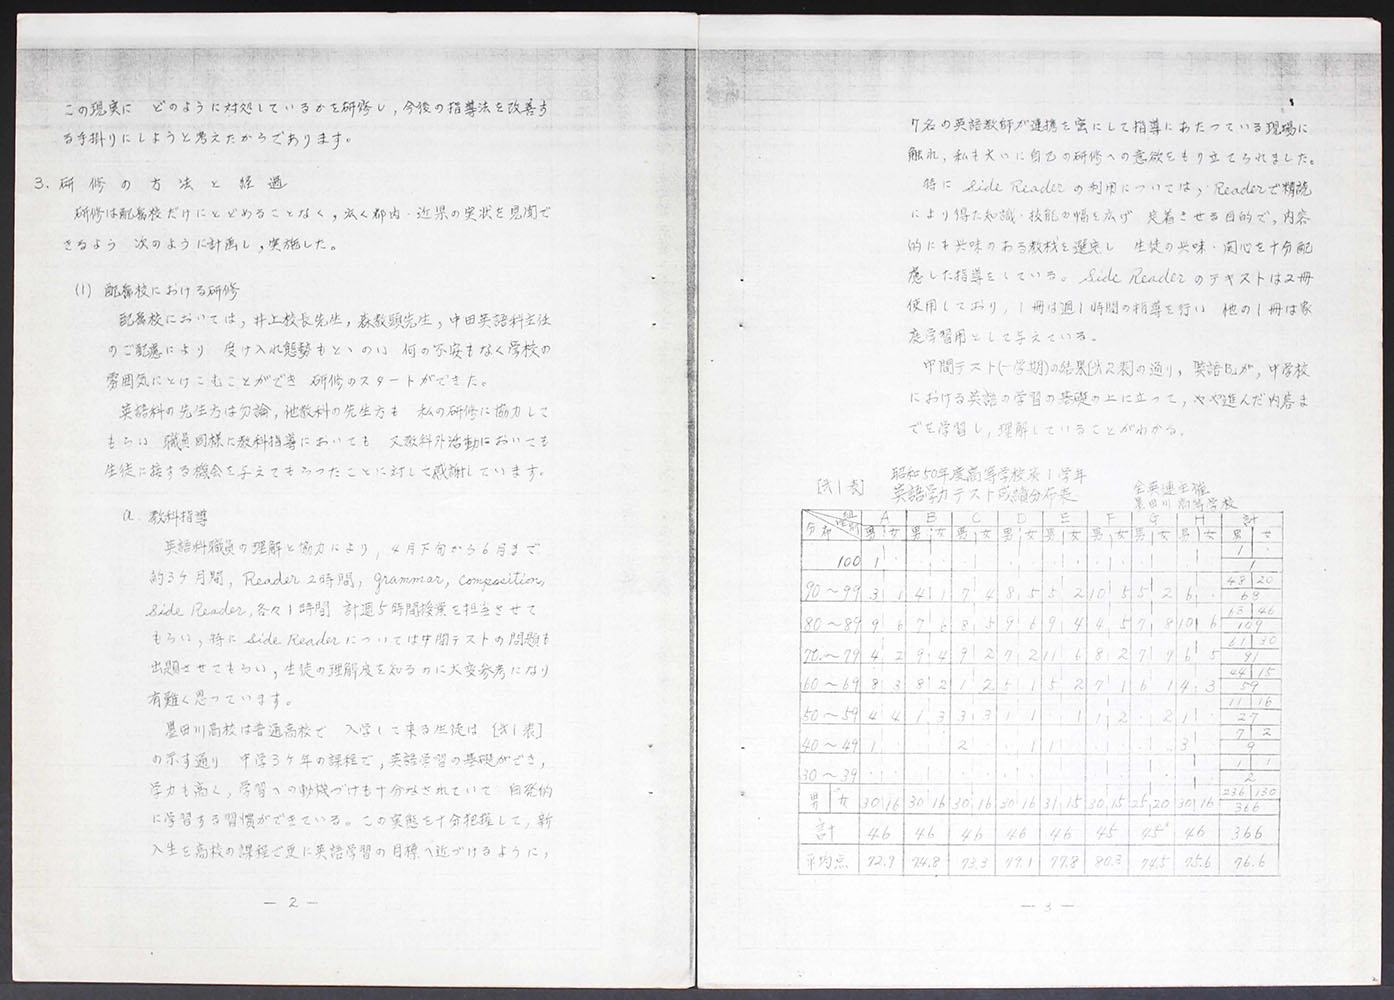 この現実に どのように対処しているかを研修し,今後の指導法を改善す
る手掛りにしようと考えたからであります。
3. 研修の方法と経過
研修は配当校だけにとどめることなく,広く都内・近県の実状を見聞で
きるよう 次のように計画し,実施した。
(1) 配当校における研修
配当校においては,井上校長先生,森教頭先生,中田英語科主任
のご配慮により 受け入れ態勢もとゝのい 何の不安もなく学校の
雰囲気にとけこむことができ 研修のスタートができた。
英語科の先生方は勿論,他教科の先生方も 私の研修に協力して
もらい 職員同様に教科指導においても 又教科外活動においても
生徒に接する機会を与えてもらったことに対して感謝しています。
a. 教科指導
英語科職員の理解と協力により,4月下旬から6月まで
約3ヶ月間,Reader 2時間,grammar, composition,
side Reader,各々1時間 計週5時間授業を担当させて
もらい,特に side Reader については中間テストの問題も
出題させてもらい,生徒の理解度を知るのに大変参考になり
有難く思っています。
墨田川高校は普通高校で 入学して来る生徒は [式1表]
の示す通り 中学3ヶ年の課程で,英語学習の基礎ができ,
学力も高く,学習への動機づけも十分なされていて 自発的
に学習する習慣ができている。この実態を十分把握して,新
入生を高校の課程で更に英語学習の目標へ近づけるように,
— 2 —
7名の英語教師が連携を密にして指導にあたっている現場に
触れ,私も大いに自己の研修への意欲をもり立てられました。
特に side Reader の利用については,Reader で精読
により得た知識・技能の幅を広げ 定着させる目的で,内容
的にも興味のある教材を選定し 生徒の興味・関心を十分配
慮した指導をしている。side Reader のテキストは2冊
使用しており,1冊は週1時間の指導を行い 他の1冊は家
庭学習用として与えている。
中間テスト(一学期)の結果(式2表)の通り,英語Bが,中学校
における英語の学習の基礎の上に立って,やや進んだ内容ま
でを学習し,理解していることがわかる。
[式1表] 昭和50年度高等学校第1学年
英語学力テスト成績分布表
全英連主催
墨田川高等学校
組 A B C D E F G H 計
分布 性別 男 女 男 女 男 女 男 女 男 女 男 女 男 女 男 女 男 女
100 1 · · · · · · · · · · · · · · · 1 ·
1
90~99 3 1 4 1 7 4 8 5 5 2 10 5 5 2 6 · 48 20
68
80~89 9 6 7 6 8 5 9 6 9 4 4 5 7 8 10 6 63 46
109
70~79 4 2 9 4 9 2 7 2 11 6 8 2 7 7 6 5 61 30
91
60~69 8 3 8 2 1 2 5 1 5 2 7 1 6 1 4 3 44 15
59
50~59 4 4 1 3 3 3 1 1 · 1 1 2 · 2 1 · 11 16
27
40~49 1 · · · 2 · · 1 1 · · · · · 3 · 7 2
9
30~39 1 1
2
男 女 30 16 30 16 30 16 30 16 31 15 30 15 25 20 30 16 236 130
366
計 46 46 46 46 46 45 45 46 366
平均点 72.9 74.8 73.3 77.1 77.8 80.3 74.5 75.6 76.6
— 3 —